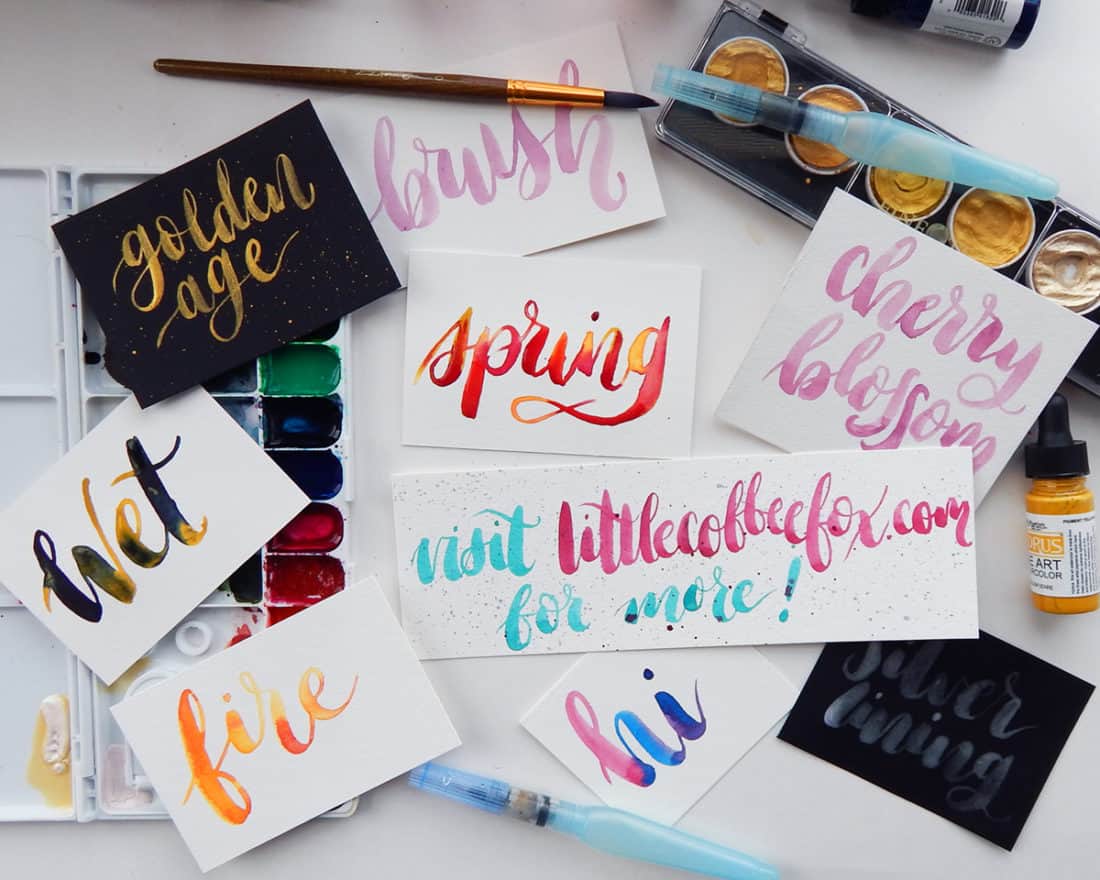 brush
golden
age
spring
cherry
blossom
wet
visit littlecoffeefox.com
for more!
fire
hi
silver
lining